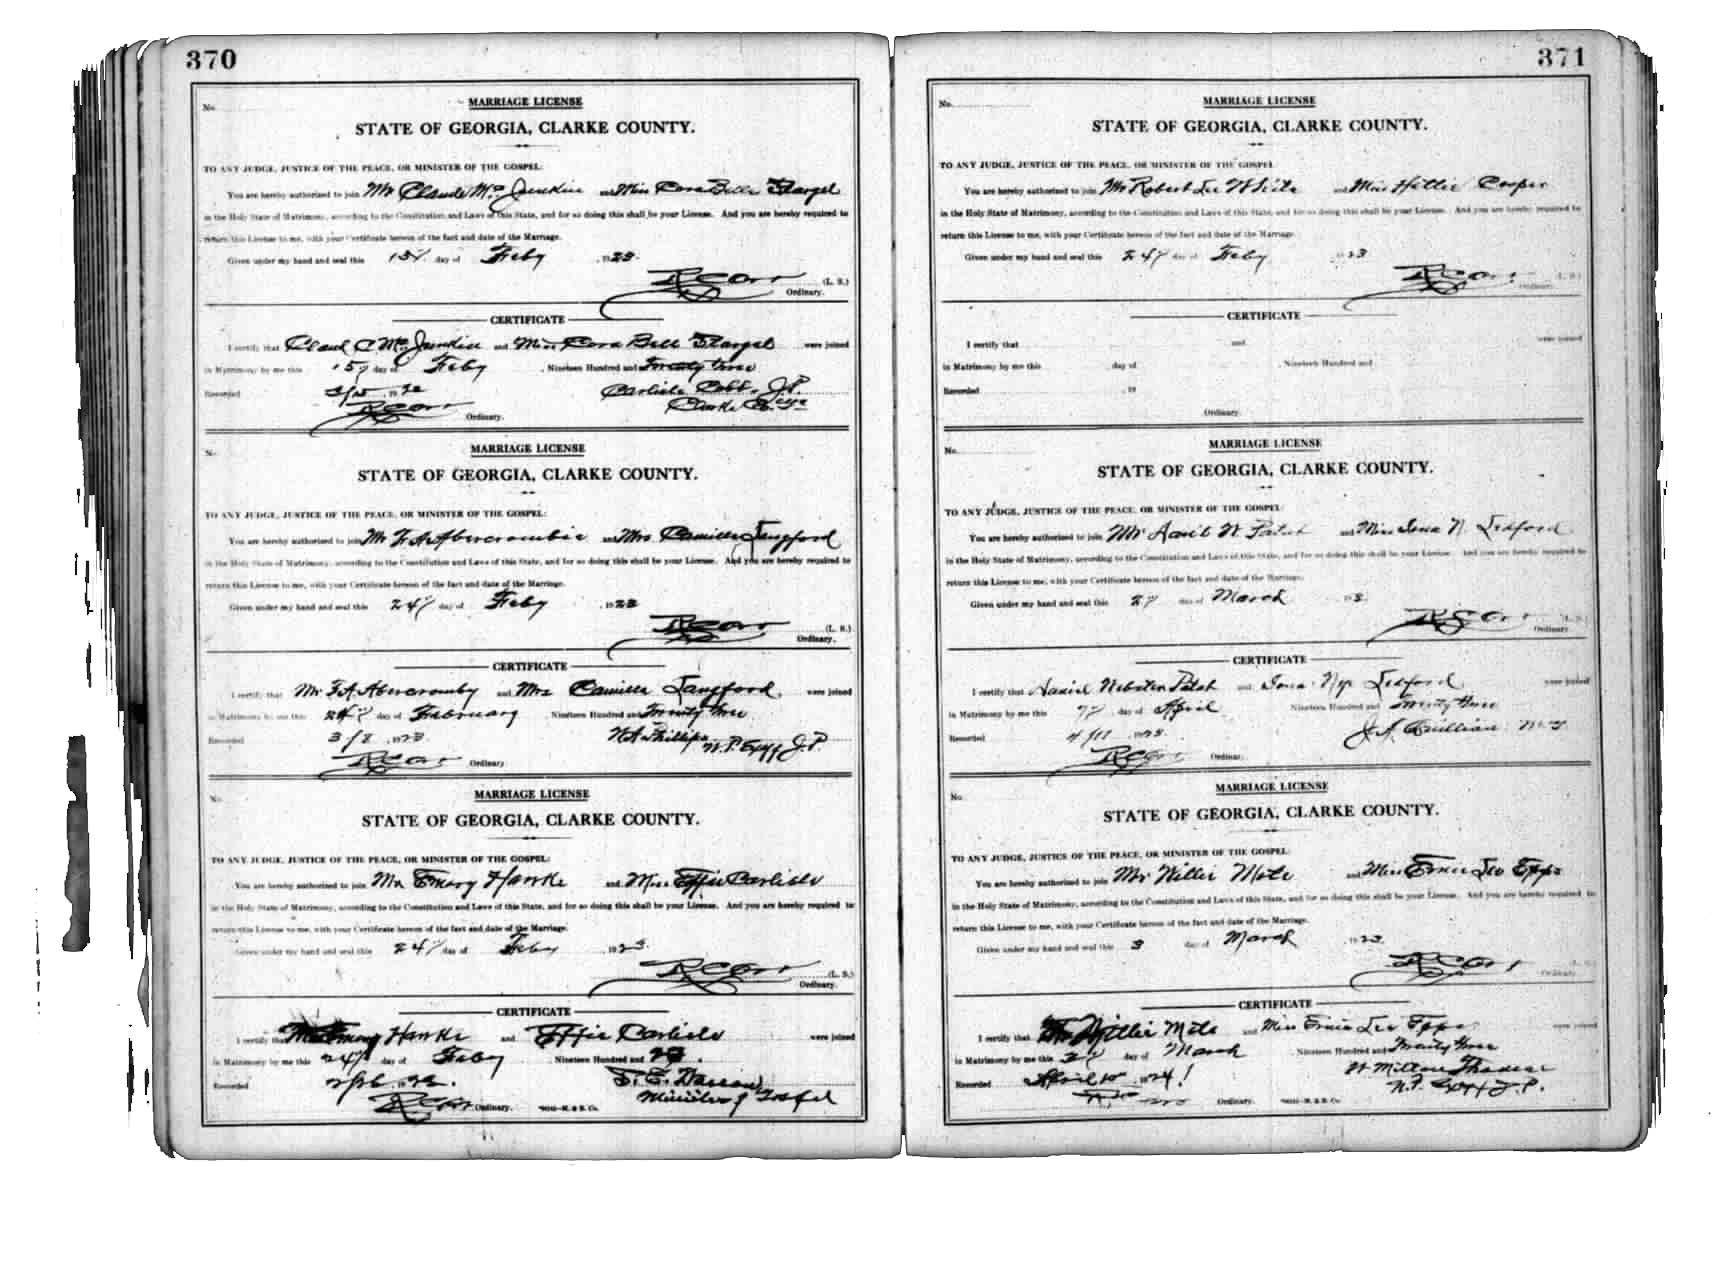 370
No.
MARRIAGE LICENSE
STATE OF GEORGIA, CLARKE COUNTY.
TO ANY JUDGE, JUSTICE OF THE PEACE, OR MINISTER OF THE GOSPEL:
You are hereby authorized to join Mr Claude Mc Junkin and Miss Cora Bell Stargel
in the Holy State of Matrimony, according to the Constitution and Laws of this State, and for so doing this shall be your License. And you are hereby required to
return this License to me, with your Certificate hereon of the fact and date of the Marriage.
Given under my hand and seal this 15 day of Feby 1923.
R C Orr (L. S.)
Ordinary.
CERTIFICATE
I certify that Claud C Mc Junkin and Miss Cora Bell Stargel were joined
in Matrimony by me this 15 day of Feby, Nineteen Hundred and Twenty three
Recorded Carlisle Cobb, J.P.
R C Orr Ordinary. Clarke Co
No.
MARRIAGE LICENSE
STATE OF GEORGIA, CLARKE COUNTY.
TO ANY JUDGE, JUSTICE OF THE PEACE, OR MINISTER OF THE GOSPEL:
You are hereby authorized to join Mr F. A. Abercrombie and Mrs Camilla Langford
in the Holy State of Matrimony, according to the Constitution and Laws of this State, and for so doing this shall be your License. And you are hereby required to
return this License to me, with your Certificate hereon of the fact and date of the Marriage.
Given under my hand and seal this 24 day of Feby 1923
R C Orr (L. S.)
Ordinary.
CERTIFICATE
I certify that Mr F. A. Abercromby and Mrs Camilla Langford were joined
in Matrimony by me this 24 day of February, Nineteen Hundred and Twenty three
Recorded 3/8 1923. Phillips
R C Orr Ordinary. J. P.
No.
MARRIAGE LICENSE
STATE OF GEORGIA, CLARKE COUNTY.
TO ANY JUDGE, JUSTICE OF THE PEACE, OR MINISTER OF THE GOSPEL:
You are hereby authorized to join Mr Emory Hawks and Miss Effie Carlisle
in the Holy State of Matrimony, according to the Constitution and Laws of this State, and for so doing this shall be your License. And you are hereby required to
return this License to me, with your Certificate hereon of the fact and date of the Marriage.
Given under my hand and seal this 24 day of Feby 1923.
R C Orr (L. S.)
Ordinary.
CERTIFICATE
I certify that Mr Emory Hawks and Effie Carlisle were joined
in Matrimony by me this 24 day of Feby Nineteen Hundred and 23.
Recorded
R C Orr Ordinary. Minister of Gospel
371
No.
MARRIAGE LICENSE
STATE OF GEORGIA, CLARKE COUNTY.
TO ANY JUDGE, JUSTICE OF THE PEACE, OR MINISTER OF THE GOSPEL
You are hereby authorized to join Mr Robert Lee White and Miss Hattie Cooper
in the Holy State of Matrimony, according to the Constitution and Laws of this State, and for so doing this shall be your License. And you are hereby required to
return this License to me, with your Certificate hereon of the fact and date of the Marriage.
Given under my hand and seal this 24 day of Feby 1923
R C Orr (L. S.)
Ordinary.
CERTIFICATE
I certify that and were joined
in Matrimony by me this day of , Nineteen Hundred and
Recorded , 19
Ordinary.
No.
MARRIAGE LICENSE
STATE OF GEORGIA, CLARKE COUNTY.
TO ANY JUDGE, JUSTICE OF THE PEACE, OR MINISTER OF THE GOSPEL:
You are hereby authorized to join Mr W Patat and Miss Iona N. Ledford
in the Holy State of Matrimony, according to the Constitution and Laws of this State, and for so doing this shall be your License. And you are hereby required to
return this License to me, with your Certificate hereon of the fact and date of the Marriage.
Given under my hand and seal this day of March
R C Orr (L. S.)
Ordinary
CERTIFICATE
I certify that Daniel Webster Patat and Iona Ledford were joined
in Matrimony by me this 7 day of April Nineteen Hundred and Twenty three
Recorded J. A. Quillian
R C Orr Ordinary.
No.
MARRIAGE LICENSE
STATE OF GEORGIA, CLARKE COUNTY.
TO ANY JUDGE, JUSTICE OF THE PEACE, OR MINISTER OF THE GOSPEL:
You are hereby authorized to join Mr Willie Mote and Miss Ernie Leo Epps
in the Holy State of Matrimony, according to the Constitution and Laws of this State, and for so doing this shall be your License. And you are hereby required to
return this License to me, with your Certificate hereon of the fact and date of the Marriage.
Given under my hand and seal this 3 day of March 1923
R C Orr (L. S.)
Ordinary.
CERTIFICATE
I certify that Mr Willie Mote and Miss Ernie Leo Epps were joined
in Matrimony by me this day of March Nineteen Hundred and Twenty three
Recorded April 10 1924! W Milton
Ordinary. J. P.